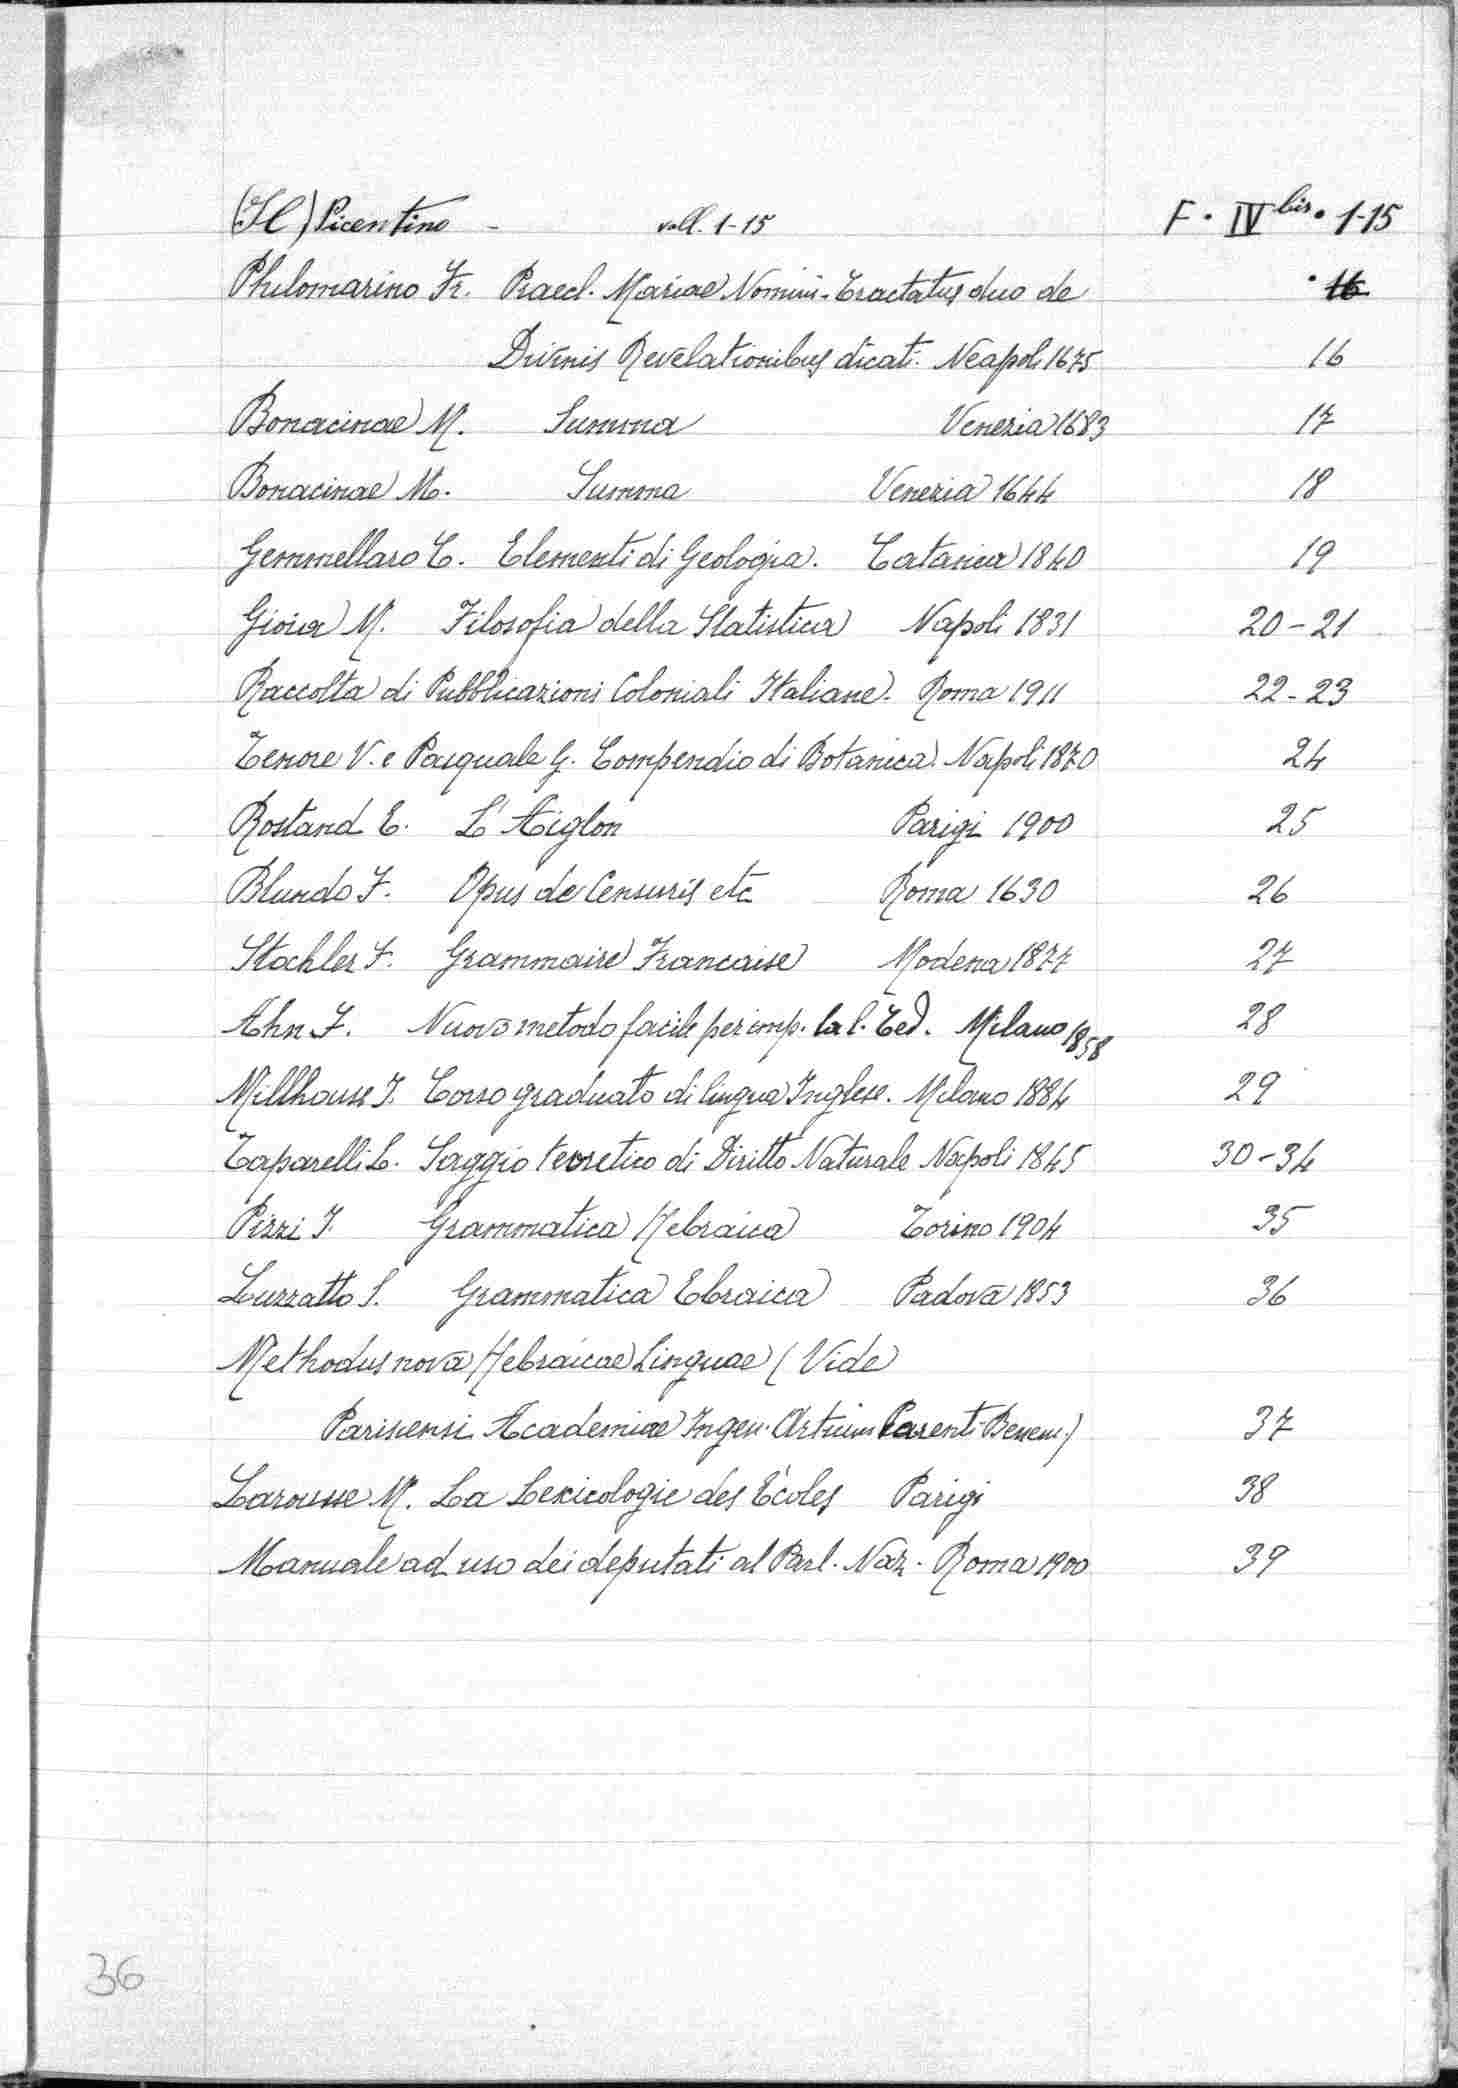 (Il) Picentino - voll. 1-15 F. IV bis. 1-15
Philomarino Fr. Praecl. Mariae Nomini. Tractatus duo de . 16
Divinis Revelationibus dicati. Neapoli 1675 16
Bonacinae M. Summa Venezia 1683 17
Bonacinae M. Summa Venezia 1644 18
Gemmellaro C. Elementi di Geologia. Catania 1840 19
Gioia M. Filosofia della Statistica Napoli 1831 20-21
Raccolta di Pubblicazioni Coloniali Italiane. Roma 1911 22-23
Tenore V. e Pasquale G. Compendio di Botanica. Napoli 1870 24
Rostand E. L'Aiglon Parigi 1900 25
Blundo F. Opus de Censuris etc Roma 1630 26
Stochler F. Grammaire Francaise Modena 1877 27
Ahn F. Nuovo metodo facile per imp. la l. Ted. Milano 1858 28
Millhouse J. Corso graduato di lingua Inglese. Milano 1884 29
Taparelli L. Saggio teoretico di Diritto Naturale Napoli 1845 30-34
Pizzi I. Grammatica Hebraica Torino 1904 35
Luzzatto S. Grammatica Ebraica Padova 1853 36
Methodus nova Hebraicae Linguae (Vide
Academiae Ingen. Artium Parenti 37
Larousse M. La Lexicologie des Écoles Parigi 38
Manuale ad uso dei deputati al Parl. Naz. Roma 1900 39
36